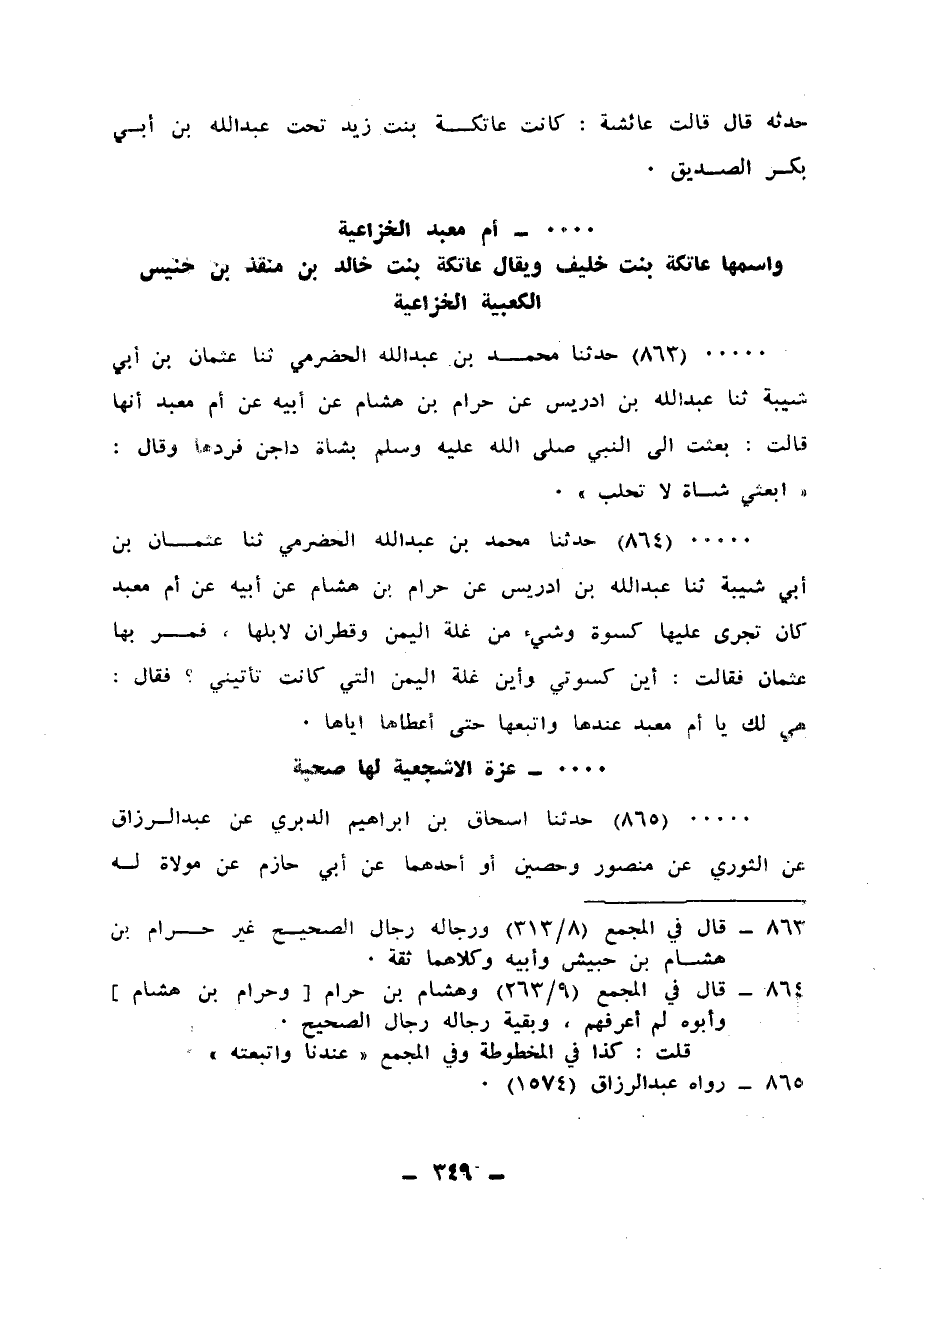 حدثه قال قالت عائشة : كانت عاتكـــة بنت زيد تحت عبدالله بن أبـي
بكـر الصـديق ٠
٠٠٠٠ ــ أم معبد الخزاعية
واسمها عاتكة بنت خليف ويقال عاتكة بنت خالد بن منقذ بن خنيس
الكعبية الخزاعية
٠٠٠٠٠ (٨٦٣) حدثنا محمـــد بن عبدالله الحضرمي ثنا عثمان بن أبي
شيبة ثنا عبدالله بن ادريس عن حرام بن هشام عن أبيه عن أم معبد أنها
قالت : بعثت الى النبي صلى الله عليه وسلم بشاة داجن فردها وقال :
« ابعثي شـاة لا تحلب » ٠
٠٠٠٠٠ (٨٦٤) حدثنا محمد بن عبدالله الحضرمي ثنا عثمـــان بن
أبي شيبة ثنا عبدالله بن ادريس عن حرام بن هشام عن أبيه عن أم معبد
كان تجرى عليها كسوة وشيء من غلة اليمن وقطران لابلها ، فمـــر بها
عثمان فقالت : أين كسوتي وأين غلة اليمن التي كانت تأتيني ؟ فقال :
هي لك يا أم معبد عندها واتبعها حتى أعطاها اياها ٠
٠٠٠٠ ــ عزة الاشجعية لها صحبة
٠٠٠٠٠ (٨٦٥) حدثنا اسحاق بن ابراهيم الدبري عن عبدالـرزاق
عن الثوري عن منصور وحصين أو أحدهما عن أبي حازم عن مولاة لـه
٨٦٣ ــ قال في المجمع (٣١٣/٨) ورجاله رجال الصحيـح غير حـــرام بن
هشـام بن حبيش وأبيه وكلاهما ثقة ٠
٨٦٤ ــ قال في المجمع (٢٦٣/٩) وهشام بن حرام [ وحرام بن هشام ]
وأبوه لم أعرفهم ، وبقية رجاله رجال الصحيح ٠
قلت : كذا في المخطوطة وفي المجمع « عندنا واتبعته »
٨٦٥ ــ رواه عبدالرزاق (١٥٧٤) ٠
ــ ٣٤٩ ــ